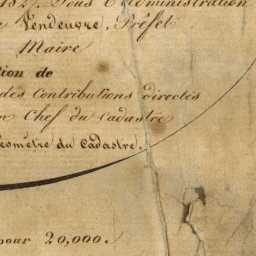 182?. Sous l'Administration
Vendeuvre, Préfet
Maire
tion de
des Contributions directes
en Chef du Cadastre
éomètre du Cadastre.
pour 20,000.